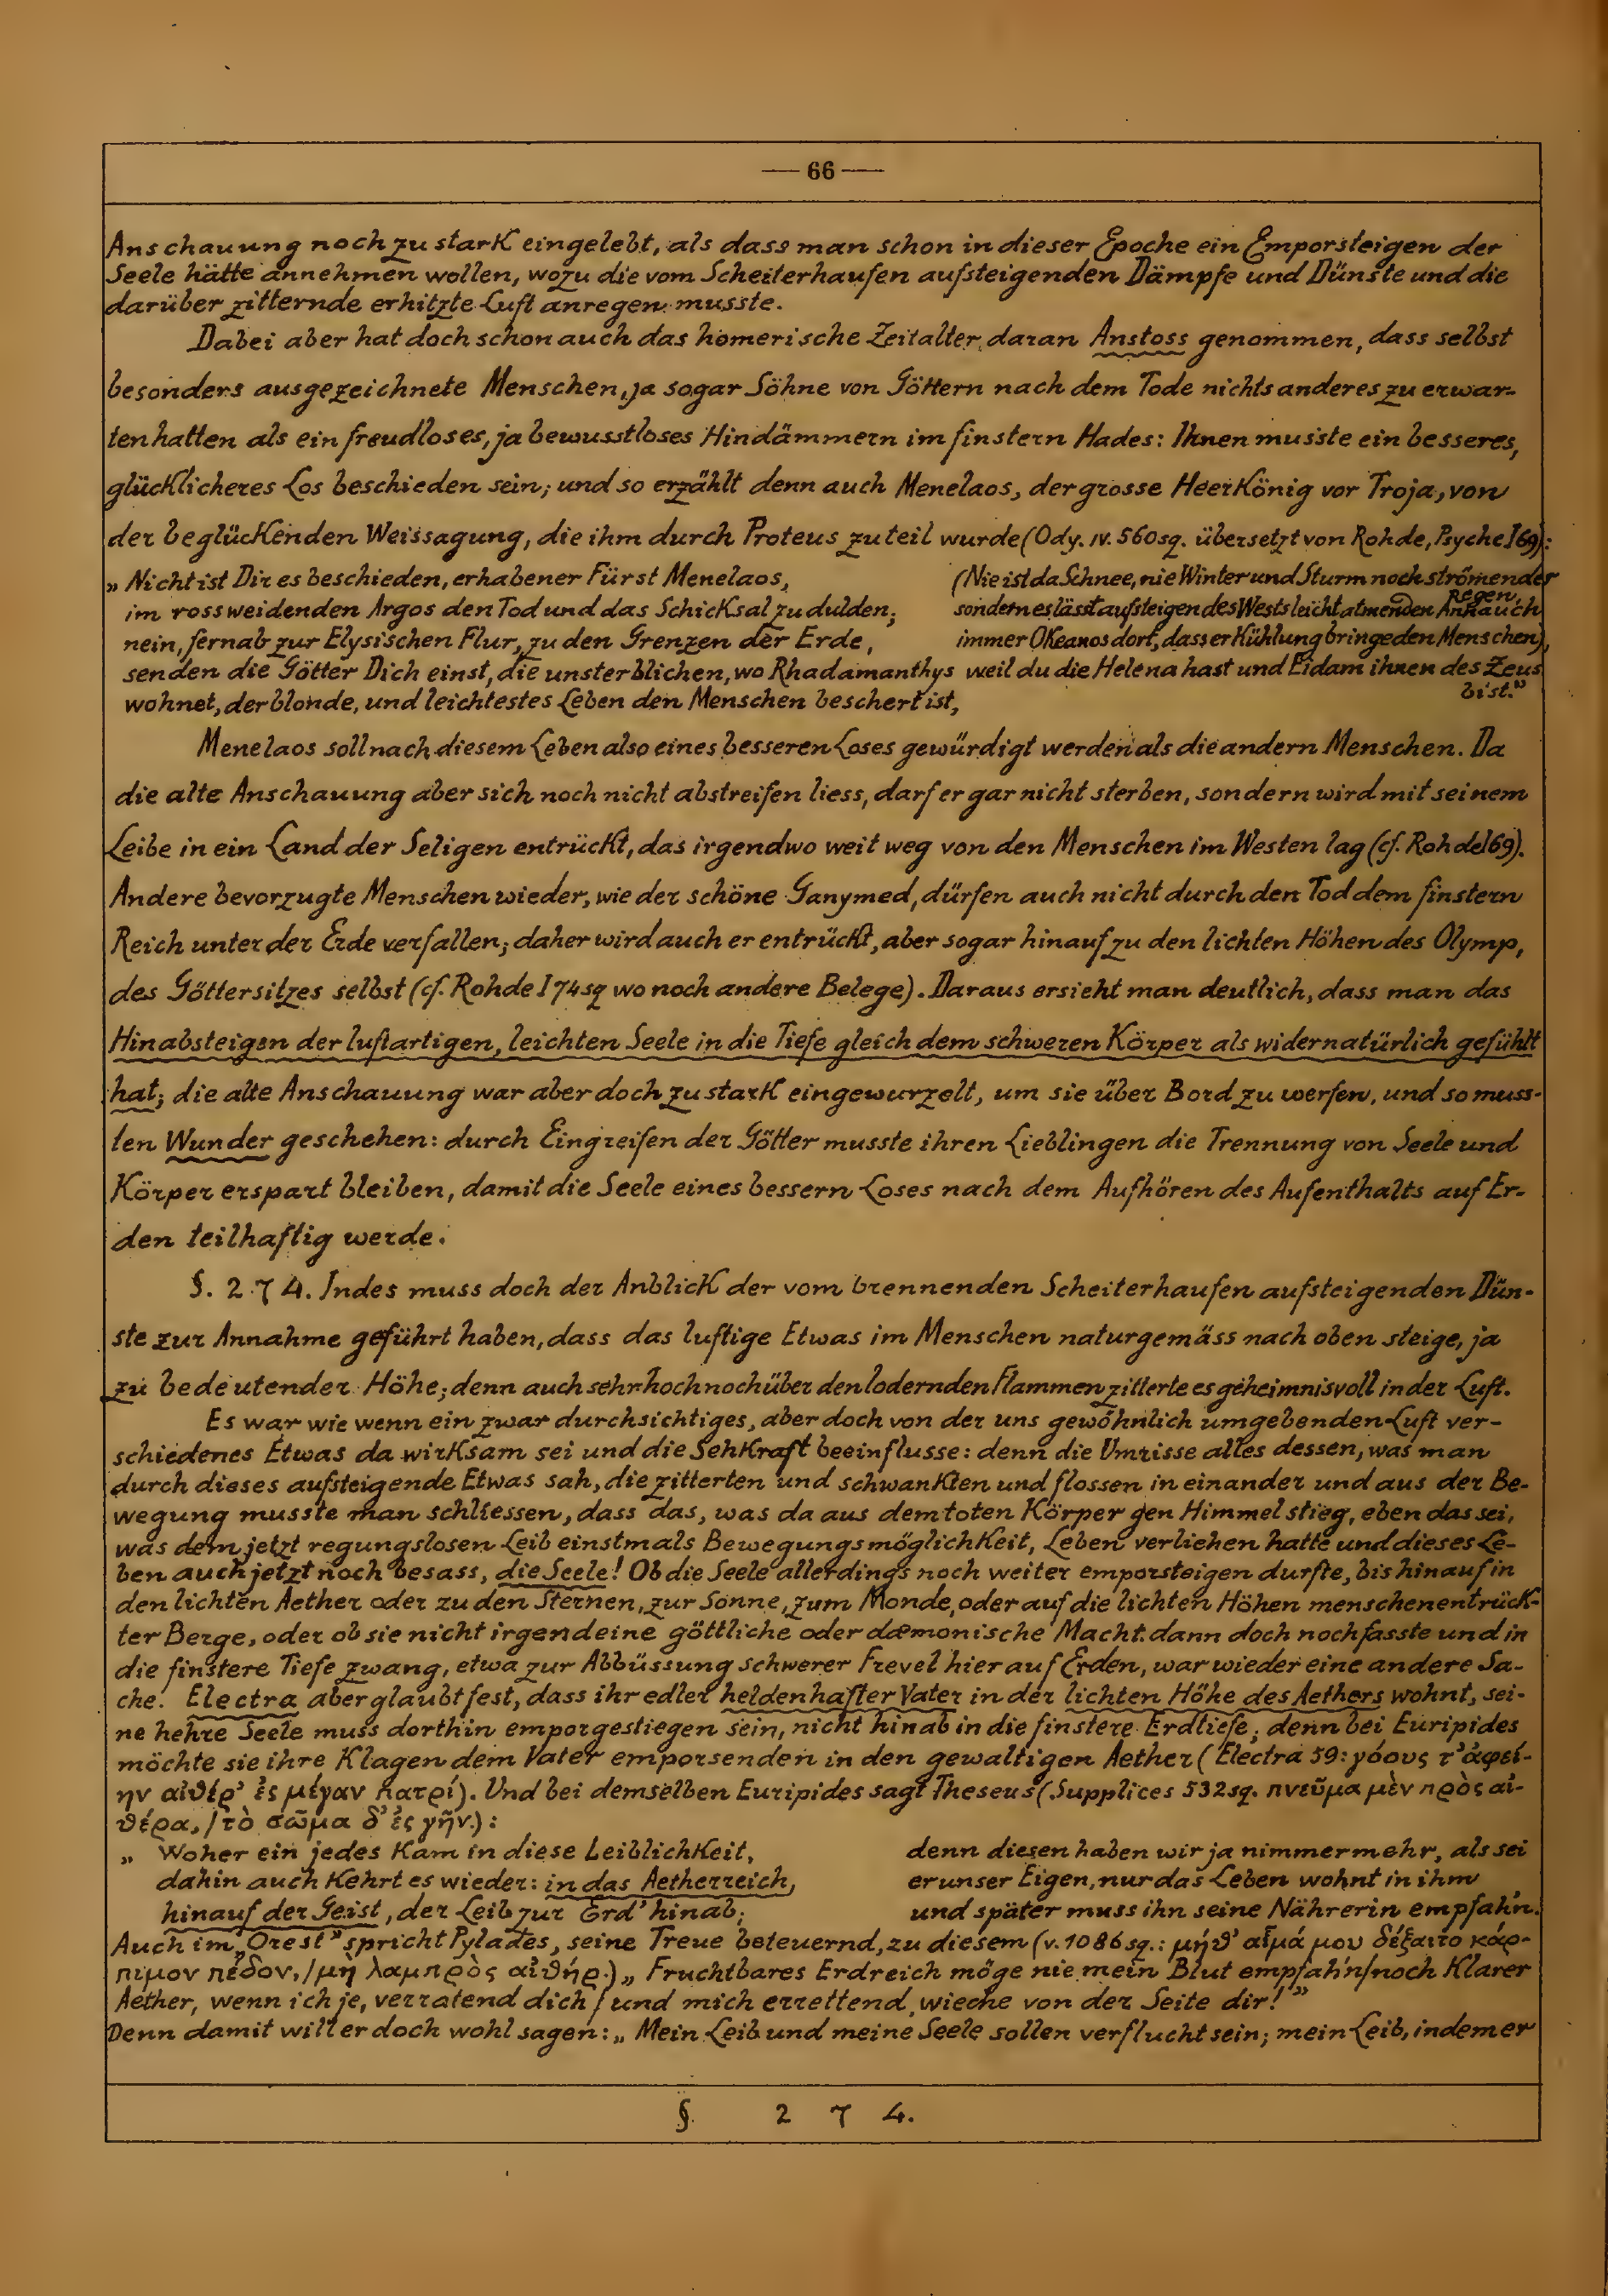 — 66 —
Anschauung noch zu stark eingelebt, als dass man schon in dieser Epoche ein Emporsteigen der
Seele hätte annehmen wollen, wozu die vom Scheiterhaufen aufsteigenden Dämpfe und Dünste und die
darüber zitternde erhitzte Luft anregen musste.
Dabei aber hat doch schon auch das homerische Zeitalter daran Anstoss genommen, dass selbst
besonders ausgezeichnete Menschen, ja sogar Söhne von Göttern nach dem Tode nichts anderes zu erwar-
ten hatten als ein freudloses, ja bewusstloses Hindämmern im finstern Hades: Ihnen musste ein besseres,
glücklicheres Los beschieden sein; und so erzählt denn auch Menelaos, der grosse Heerkönig vor Troja, von
der beglückenden Weissagung, die ihm durch Proteus zu teil wurde (Ody. IV. 560 sq. übersetzt von Rohde, Psyche I 69):
„Nicht ist Dir es beschieden, erhabener Fürst Menelaos,
im rossweidenden Argos den Tod und das Schicksal zu dulden;
nein, fernab zur Elysischen Flur, zu den Grenzen der Erde,
senden die Götter Dich einst, die unsterblichen, wo Rhadamanthys
wohnet, der blonde, und leichtestes Leben den Menschen beschert ist,
(Nie ist da Schnee, nie Winter und Sturm noch strömender
Regen,
sondern es lässt aufsteigen des Wests leicht atmenden Anhauch
immer Okeanos dort, dass er Kühlung bringe den Menschen),
weil du die Helena hast und Eidam ihnen des Zeus
bist."
Menelaos soll nach diesem Leben also eines besseren Loses gewürdigt werden als die andern Menschen. Da
die alte Anschauung aber sich noch nicht abstreifen liess, darf er gar nicht sterben, sondern wird mit seinem
Leibe in ein Land der Seligen entrückt, das irgendwo weit weg von den Menschen im Westen lag (cf. Rohde I 69).
Andere bevorzugte Menschen wieder, wie der schöne Ganymed, dürfen auch nicht durch den Tod dem finstern
Reich unter der Erde verfallen; daher wird auch er entrückt, aber sogar hinauf zu den lichten Höhen des Olymp,
des Göttersitzes selbst (cf. Rohde I 74 sq wo noch andere Belege). Daraus ersieht man deutlich, dass man das
Hinabsteigen der luftartigen, leichten Seele in die Tiefe gleich dem schweren Körper als widernatürlich gefühlt
hat; die alte Anschauung war aber doch zu stark eingewurzelt, um sie über Bord zu werfen, und so muss-
ten Wunder geschehen: durch Eingreifen der Götter musste ihren Lieblingen die Trennung von Seele und
Körper erspart bleiben, damit die Seele eines bessern Loses nach dem Aufhören des Aufenthalts auf Er-
den teilhaftig werde.
§. 274. Indes muss doch der Anblick der vom brennenden Scheiterhaufen aufsteigenden Dün-
ste zur Annahme geführt haben, dass das luftige Etwas im Menschen naturgemäss nach oben steige, ja
zu bedeutender Höhe; denn auch sehr hoch noch über den lodernden Flammen zitterte es geheimnisvoll in der Luft.
Es war wie wenn ein zwar durchsichtiges, aber doch von der uns gewöhnlich umgebenden Luft ver-
schiedenes Etwas da wirksam sei und die Sehkraft beeinflusse: denn die Umrisse alles dessen, was man
durch dieses aufsteigende Etwas sah, die zitterten und schwankten und flossen in einander und aus der Be-
wegung musste man schliessen, dass das, was da aus dem toten Körper gen Himmel stieg, eben das sei,
was dem jetzt regungslosen Leib einstmals Bewegungsmöglichkeit, Leben verliehen hatte und dieses Le-
ben auch jetzt noch besass, die Seele! Ob die Seele allerdings noch weiter emporsteigen durfte, bis hinauf in
den lichten Aether oder zu den Sternen, zur Sonne, zum Monde, oder auf die lichten Höhen menschenentrück-
ter Berge, oder ob sie nicht irgend eine göttliche oder dæmonische Macht dann doch noch fasste und in
die finstere Tiefe zwang, etwa zur Abbüssung schwerer Frevel hier auf Erden, war wieder eine andere Sa-
che. Electra aber glaubt fest, dass ihr edler heldenhafter Vater in der lichten Höhe des Aethers wohnt, sei-
ne hehre Seele muss dorthin emporgestiegen sein, nicht hinab in die finstere Erdtiefe; denn bei Euripides
möchte sie ihre Klagen dem Vater emporsenden in den gewaltigen Aether (Electra 59: γόους τ' ἀφεί-
ην αἰθέρ' ἐς μέγαν πατρί). Und bei demselben Euripides sagt Theseus (Supplices 532 sq. πνεῦμα μὲν πρὸς αἰ-
θέρα, / τὸ σῶμα δ' ἐς γῆν.):
„Woher ein jedes kam in diese Leiblichkeit,
dahin auch kehrt es wieder: in das Aetherreich,
hinauf der Geist, der Leib zur Erd' hinab;
denn diesen haben wir ja nimmermehr, als sei
er unser Eigen, nur das Leben wohnt in ihm
und später muss ihn seine Nährerin empfahn.
Auch im „Orest" spricht Pylades, seine Treue beteuernd, zu diesem (v. 1086 sq.: μήθ' αἷμά μου δέξαιτο κάρ-
πιμον πέδον, / μὴ λαμπρὸς αἰθήρ.) „Fruchtbares Erdreich möge nie mein Blut empfah'n / noch klarer
Aether, wenn ich je, verratend dich / und mich errettend, wieche von der Seite dir!"
Denn damit will er doch wohl sagen: „Mein Leib und meine Seele sollen verflucht sein; mein Leib, indem er
§ 274.